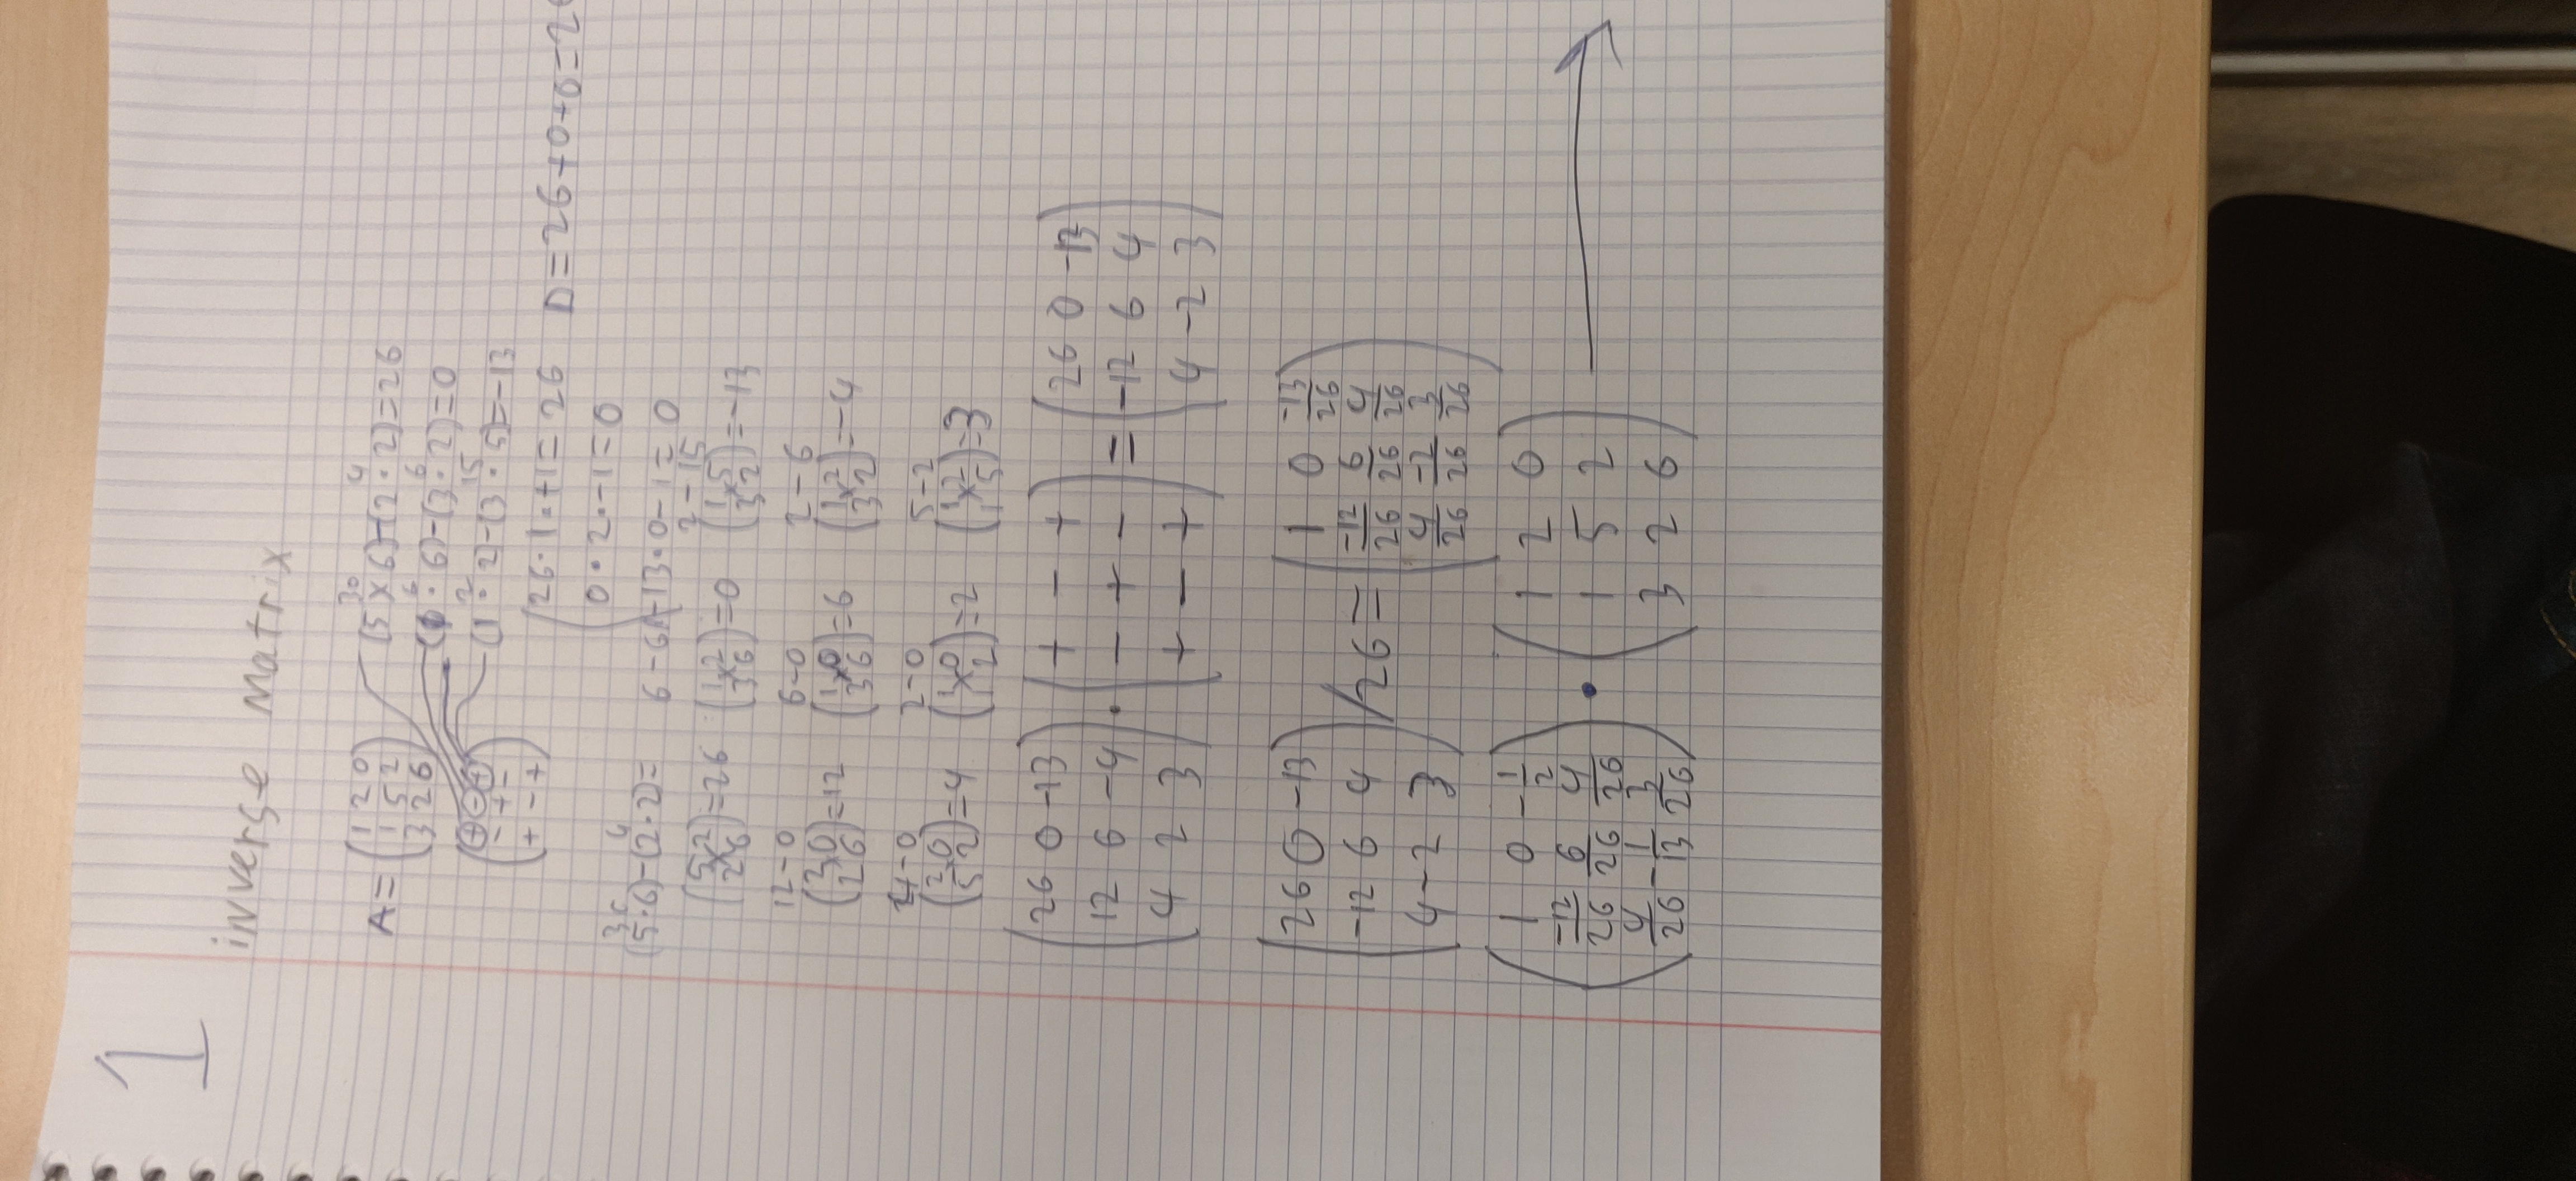 1
inverse Matrix
A = (1 2 0
1 5 2
3 2 6)
(5 × 6) - (2 · 2) = 26
30 4
(1 · 6) - (3 · 2) = 0
6 6
(1 · 2) - (3 · 5) = -13
2 15
(+ - +
- + -
+ - +)
26 · 1 · +1 = 26 D = 26 + 0 + 0 = 2
0 · 2 · -1 = 0
30 4
(5 · 6) - (2 · 2) = 6 - 6 -13 · 0 - 1 = 0
2 - 15
(5 2
2 6) = 26 (1 2
3 6) = 0 (1 5
3 2) = -13
12 - 0 6 - 0 2 - 6
(2 0
2 6) = 12 (1 0
3 6) = 6 (1 2
3 2) = -4
4 - 0 2 - 0 5 - 2
(2 0
5 2) = 4 (1 0
1 2) = 2 (1 2
1 5) = 3
(26 0 -13
12 6 -4
4 2 3) · (+ - +
- + -
+ - +) = (26 0 -13
-12 6 4
4 -2 3)
(26 0 -13
-12 6 4
4 -2 3) /26 = (1 0 -13/26
-12/26 6/26 4/26
4/26 -2/26 3/26)
(1 0 -1/2
-12/26 6/26 4/26
4/26 -1/13 3/26) · (1 2 0
1 5 2
3 2 6) →